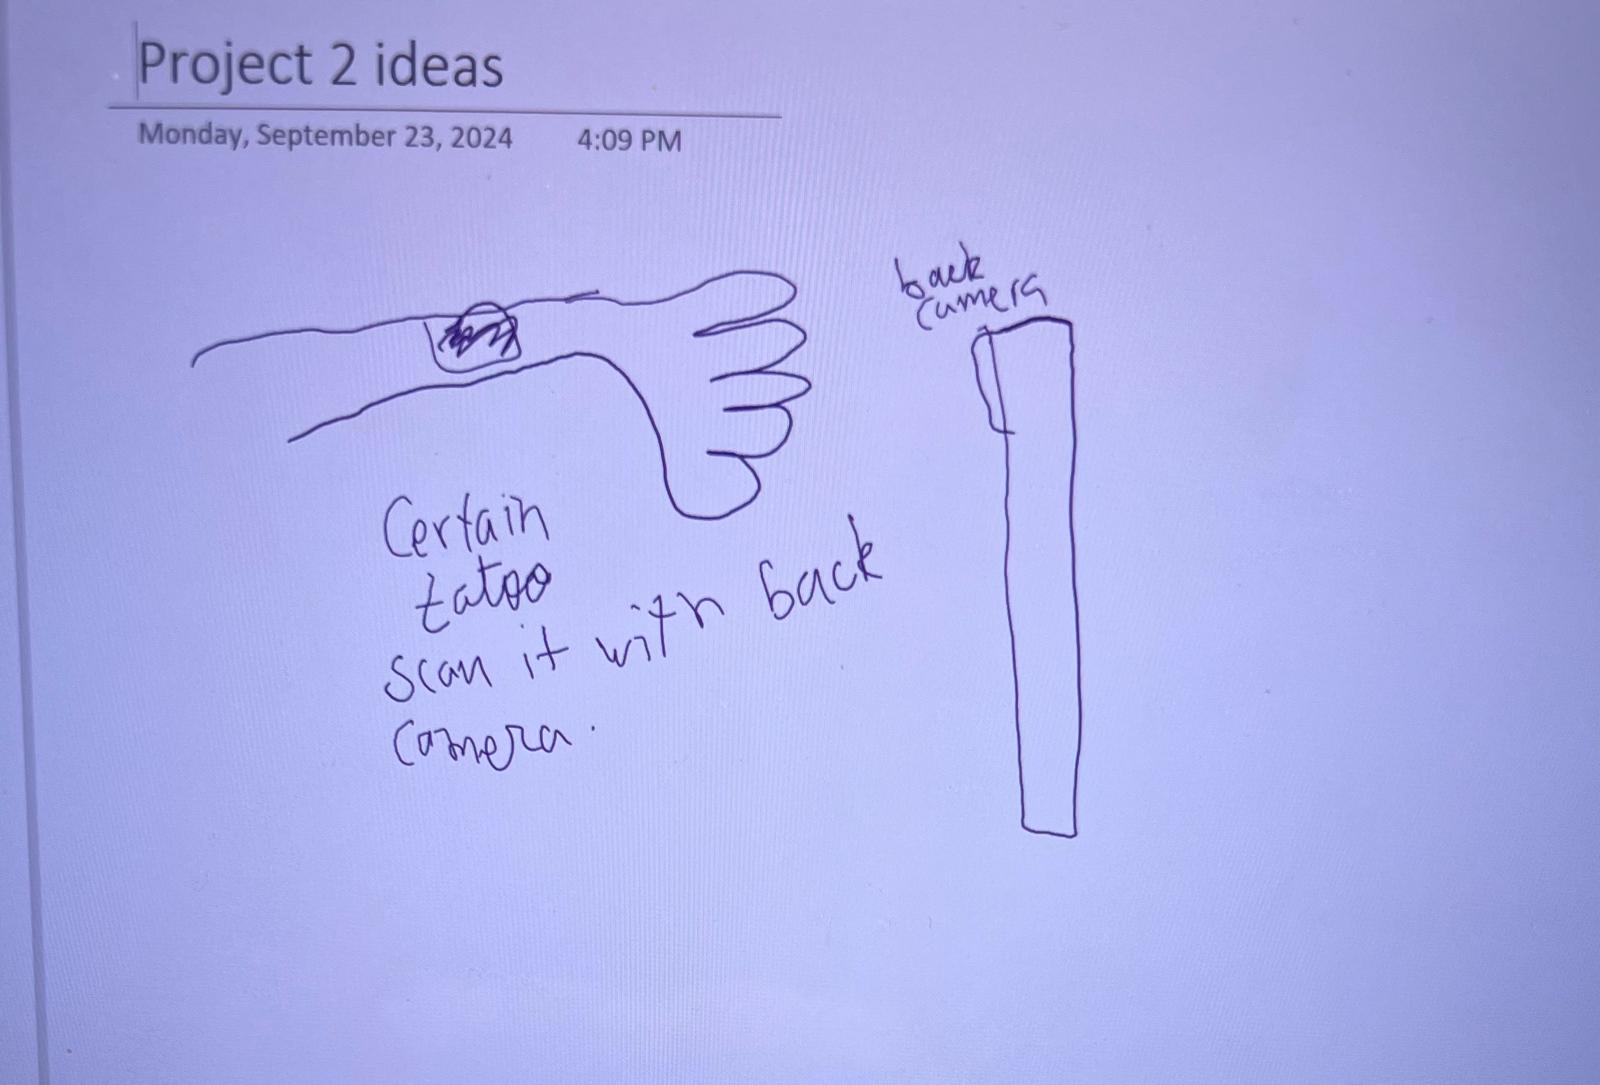 Project 2 ideas
Monday, September 23, 2024 4:09 PM
back
camera
Certain
tatoo
scan it with back
camera.